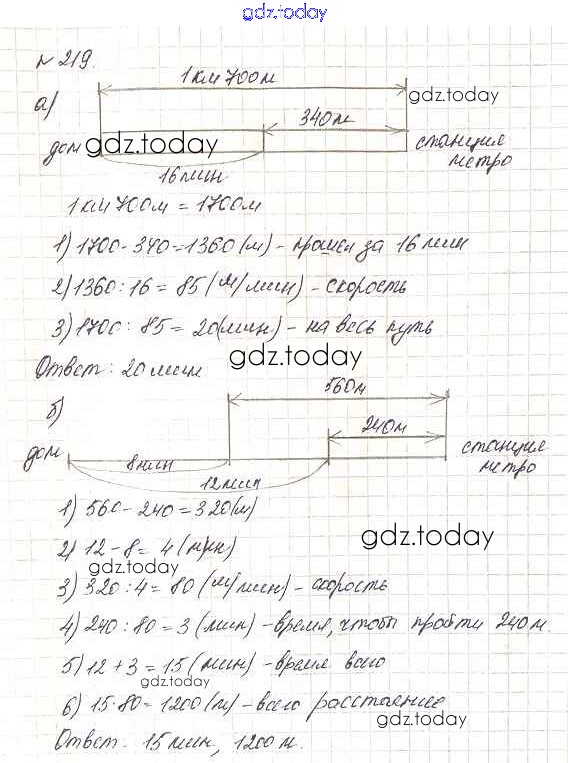 gdz.today
№ 219.
1 км 700 м
а)
gdz.today
340 м
дом gdz.today станция метро
16 мин
1 км 700 м = 1700 м
1) 1700 - 340 = 1360 (м) - прошел за 16 мин
2) 1360 : 16 = 85 (м/мин) - скорость
3) 1700 : 85 = 20 (мин) - на весь путь
gdz.today
Ответ: 20 мин
560 м
б)
240 м
дом станция метро
8 мин
12 мин
1) 560 - 240 = 320 (м)
gdz.today
2) 12 - 8 = 4 (мин)
gdz.today
3) 320 : 4 = 80 (м/мин) - скорость
4) 240 : 80 = 3 (мин) - время, чтобы пройти 240 м.
5) 12 + 3 = 15 (мин) - время всего
gdz.today
6) 15 · 80 = 1200 (м) - всего расстояние
gdz.today
Ответ: 15 мин, 1200 м.